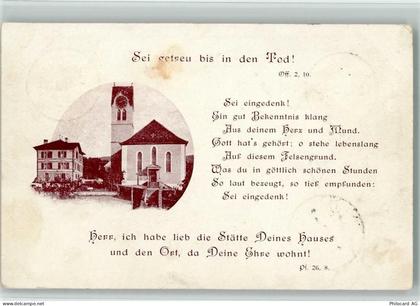 Sei getreu bis in den Tod!
Off. 2, 10.
Sei eingedenk!
Ein gut Bekenntnis klang
Aus deinem Herz und Mund.
Gott hat's gehört; o stehe lebenslang
Auf diesem Felsengrund.
Was du in göttlich schönen Stunden
So laut bezeugt, so tief empfunden:
Sei eingedenk!
Herr, ich habe lieb die Stätte Deines Hauses
und den Ort, da Deine Ehre wohnt!
Pf. 26, 8.